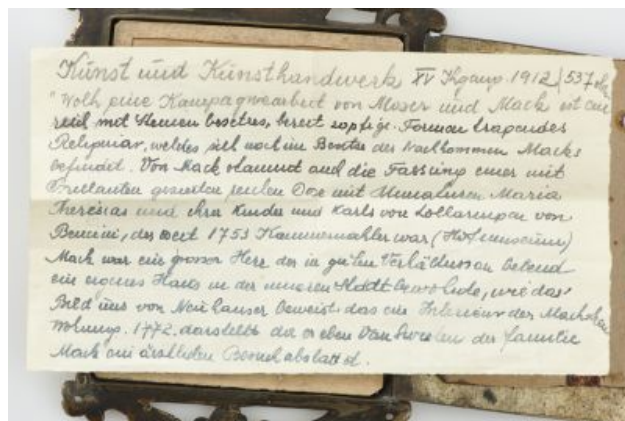 Kunst und Kunsthandwerk XV Jhgang. 1912/537
"Wohl eine Kompagniearbeit von Moser und Mack ist ein
reich mit Steinen besetztes, bereit zopfige Formen tragendes
Reliquiar, welches sich noch im Besitze der Nachkommen Macks
befindet. Von Mack stammt auch die Fassung einer mit
Brillanten gezierten, Dose mit Miniaturen Maria
Theresias und ihrer Kinder und Karls von Lotharingen von
Bencini, der seit 1753 Kammermahler war (Hofmuseum)
Mack war ein grosser Herr der in guten Verhältnissen lebend
ein eigenes Haus in der inneren Stadt bewohnte, wie das
Bild uns von Neuhauser beweist, das ein Interieur der Mackschen
Wohnung. 1772. darstellt, da er eben Van Swieten der Familie
Mack ein ärztlichen Besuch abstattet.